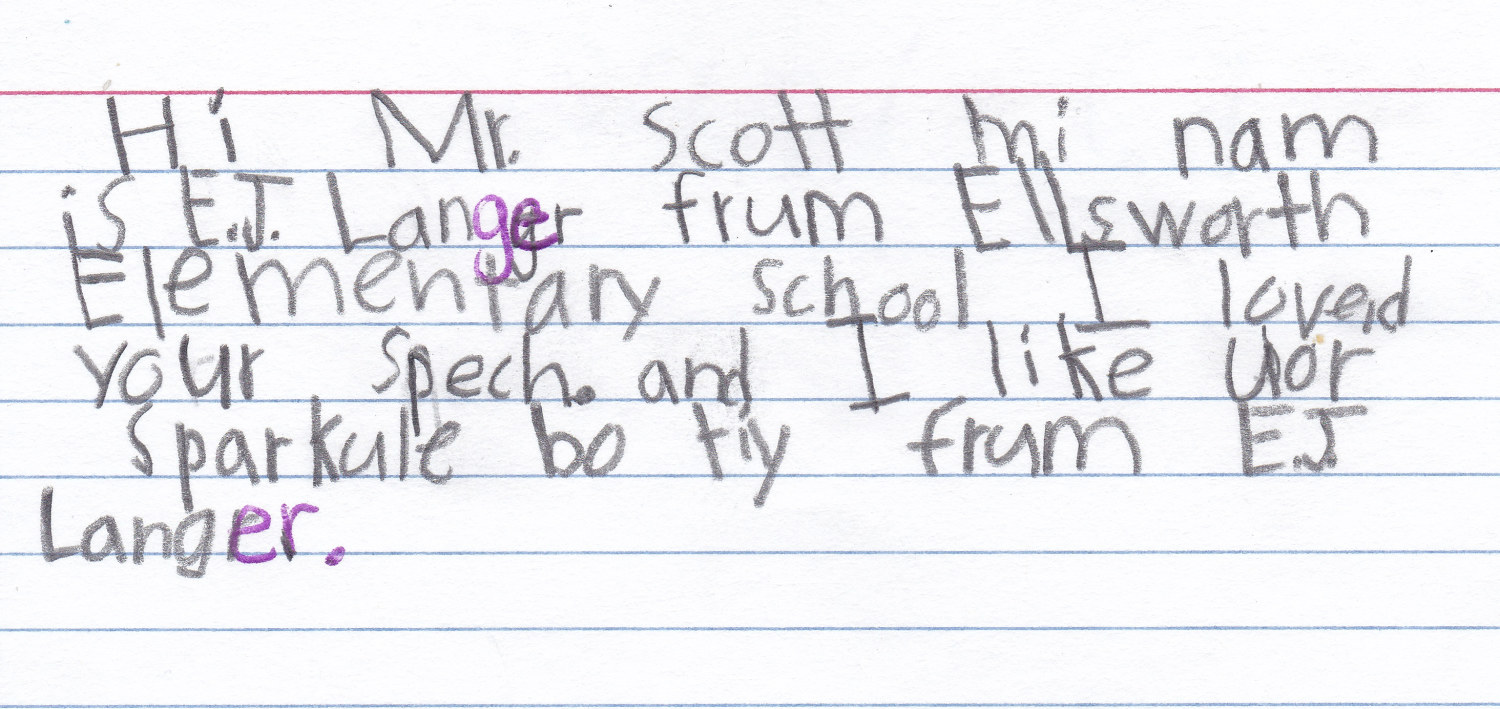 Hi Mr. Scott mi nam
is E.J. Langer frum Ellsworth
Elementary school I loved
your Spech. and I like uor
Sparkule bo tiy frum E.J
Langer.